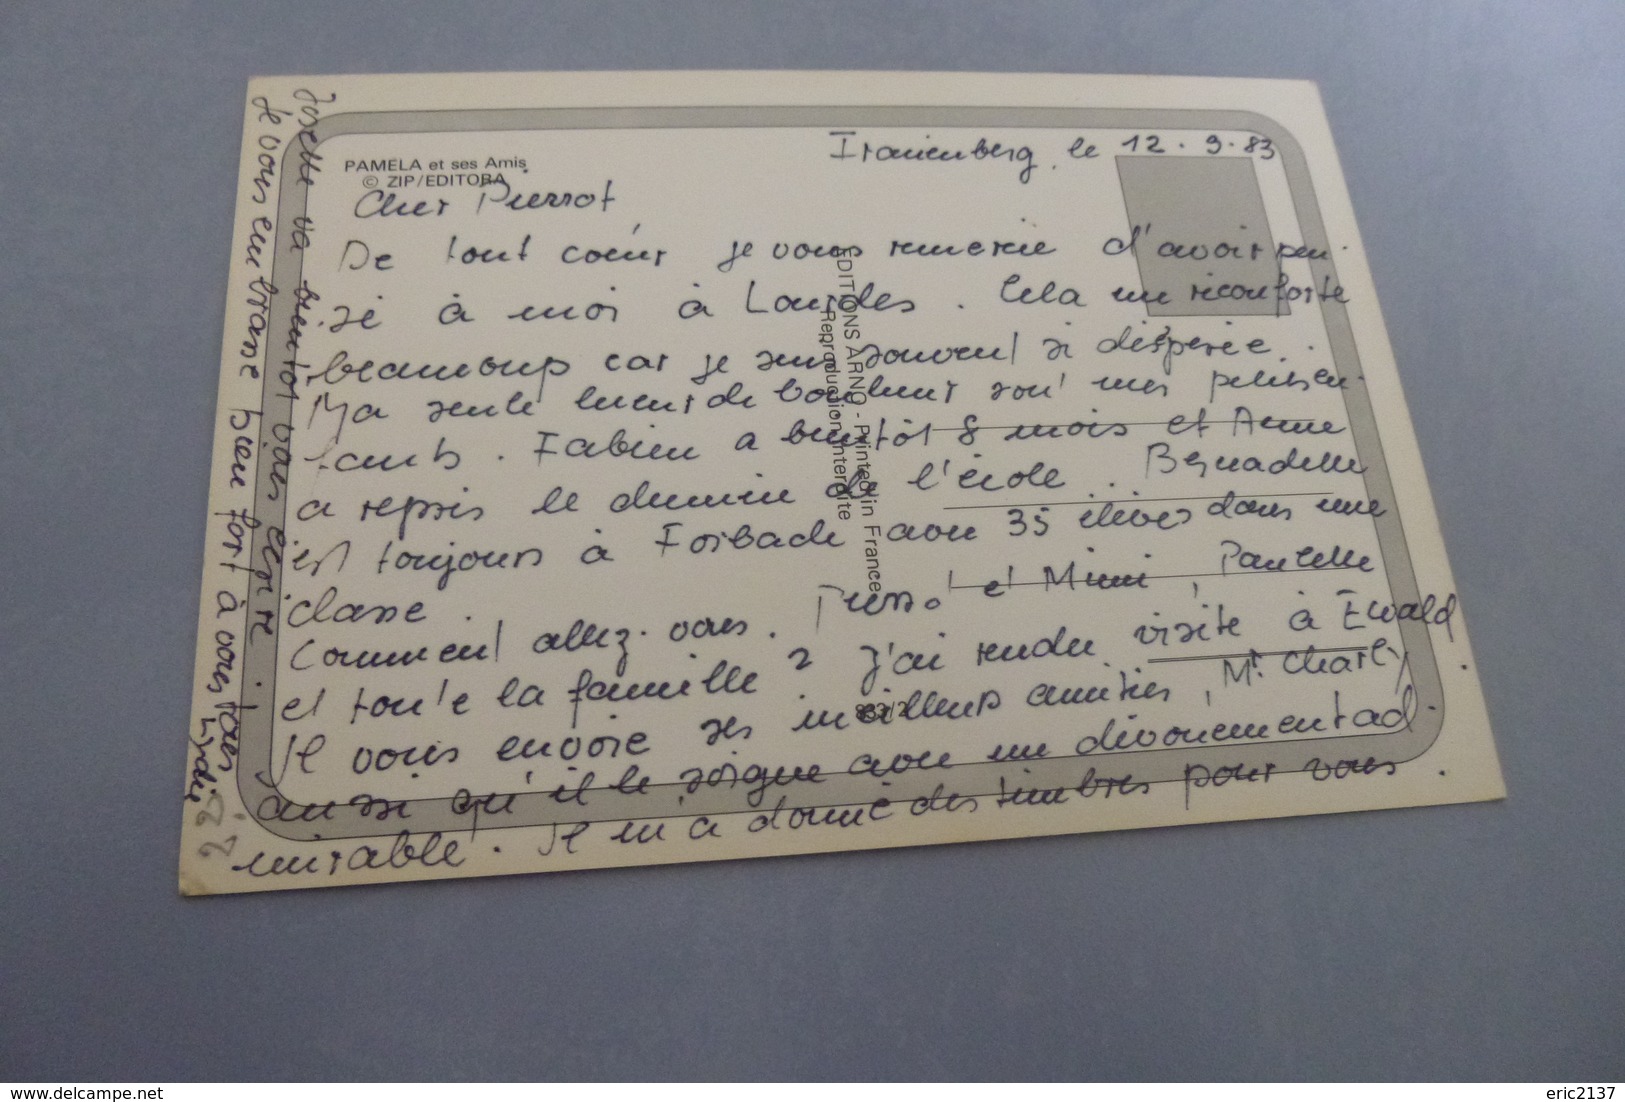 PAMELA et ses Amis
© ZIP/EDITORA
Frauenberg, le 12.9.83
Cher Pierrot
De tout coeur je vous remercie d'avoir pen-
sé à moi à Lourdes. Cela me réconforte
beaucoup car je suis souvent si désespérée.
Ma seule lueur de bonheur sont mes petits en-
fants. Fabien a bientôt 8 mois et Anne
a repris le chemin de l'école. Bernadette
est toujours à Forbach avec 35 élèves dans une
classe.
Comment allez-vous. Pierrot et Mimi, Pauzelle
et toute la famille? J'ai rendu visite à Ewald.
Il vous envoie ses meilleurs amitiés, Mr. Charly
aussi qu'il le soigne avec un dévouement ad-
mirable. Il m'a donné des timbres pour vous.
Josette va bientôt vous écrire.
Je vous embrasse bien fort à vous tous
Lydie
EDITIONS ARNO - Printed in France
Reproduction interdite
833/2
www.delcampe.net
eric2137